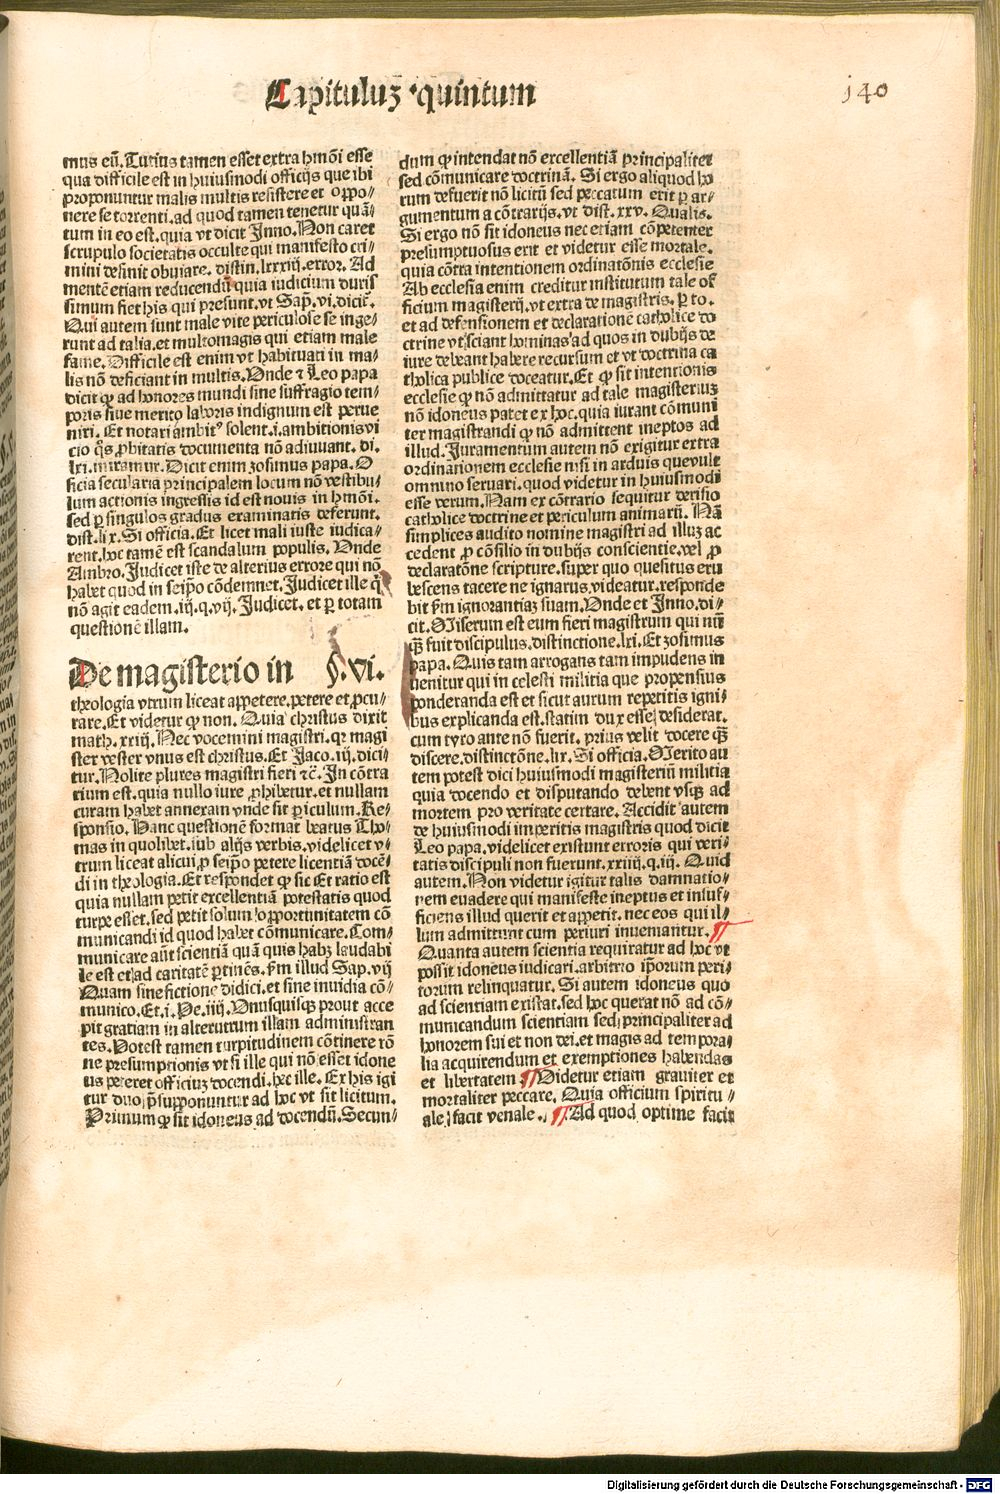 Capituluʒ quintum
140
mus eū. Tutius tamen esset extra hmōi esse
qua difficile est in huiusmodi officijs que ibi
proponuntur malis multis resistere et oppo⸗
nere se torrenti. ad quod tamen tenetur quā⸗
tum in eo est. quia vt dicit Inno. Non caret
scrupulo societatis occulte qui manifesto cri⸗
mini desinit obuiare. distin. lxxxiij. error. Ad
mentē etiam reducendū quia iudicium duris
simum fiet his qui presunt. vt Sap̄. vi. dicit̄.
Qui autem sunt male vite periculose se inge⸗
runt ad talia. et multomagis qui etiam male
fame. Difficile est enim vt habituati in ma⸗
lis nō deficiant in multis. Vnde ⁊ Leo papa
dicit ꝙ ad honores mundi sine suffragio tem⸗
poris siue merito laboris indignum est perue
niri. Et notari ambitꝰ solent. i. ambitionis vi
cio q̄s ꝓbitatis documenta nō adiuuant. di.
lxi. miramur. Dicit enim zosimus papa. O
ficia secularia principalem locum nō vestibu⸗
lum actionis ingressis id est nouis in hmōi.
sed ꝑ singulos gradus examinatis deferunt.
dist. lix. Si officia. Et licet mali iuste iudica⸗
rent. hoc tamē est scandalum populis. Vnde
Ambro. Judicet iste de alterius errore qui nō
habet quod in seip̄o cōdemnet. Judicet ille q̄
nō agit eadem. iij. q. vij. Judicet. et ꝑ totam
questionē illam.
De magisterio in §. vi.
theologia vtrum liceat appetere. petere et ꝓcu⸗
rare. Et videtur ꝙ non. Quia christus dixit
math. xxiij. Nec vocemini magistri. qꝛ magi
ster vester vnus est christus. Et Jaco. iij. dici⸗
tur. Nolite plures magistri fieri ⁊c̄. In cōtra
rium est. quia nullo iure ꝓhibetur. et nullam
curam habet annexam vnde sit ꝑiculum. Re⸗
sponsio. Hanc questionē format beatus Tho⸗
mas in quolibet. sub alijs verbis. videlicet v⸗
trum liceat alicui ꝓ seip̄o petere licentiā docē⸗
di in theologia. Et respondet ꝙ sic Et ratio est
quia nullam petit excellentiā potestatis quod
turpe esset. sed petit solum opportunitatem cō
municandi id quod habet cōmunicare. Com⸗
municare aūt scientiā quā quis habʒ laudabi
le est et ad caritatē ꝑtinēs. fm illud Sap. vij
Quam sine fictione didici. et sine inuidia cō⸗
munico. Et. i. Pe. iiij. Vnusquisqꝫ prout acce
pit gratiam in alterutrum illam administran
tes. Potest tamen turpitudinem cōtinere rō
ne presumptionis vt si ille qui nō esset idone
us peteret officiuʒ docendi. hec ille. Ex his igi
tur duo p̄supponuntur ad hoc vt sit licitum.
Primum ꝙ sit idoneus ad docendū. Secun⸗
dum ꝙ intendat nō excellentiā principaliter
sed cōmunicare doctrinā. Si ergo aliquod ho
rum defuerit nō licitū sed peccatum erit ꝑ ar⸗
gumentum a cōtrarijs. vt dist. xxv. Qualis.
Si ergo nō sit idoneus nec etiam cōpetenter
presumptuosus erit et videtur esse mortale.
quia cōtra intentionem ordinatōnis ecclesie
Ab ecclesia enim creditur institutum tale of
ficium magisterij. vt extra de magistris. ꝑ to.
et ad defensionem et declarationē catholice do
ctrine vt sciant homines ad quos in dubijs de
iure debeant habere recursum et vt doctrina ca
tholica publice doceatur. Et ꝙ sit intentionis
ecclesie ꝙ nō admittatur ad tale magisteriuʒ
nō idoneus patet ex hoc. quia iurant cōmuni
ter magistrandi ꝙ nō admittent ineptos ad
illud. Juramentum autem nō exigitur extra
ordinationem ecclesie nisi in arduis que vult
omnino seruari. quod videtur in huiusmodi
esse verum. Nam ex cōtrario sequitur derisio
catholice doctrine et periculum animarū. Nā
simplices audito nomine magistri ad illuʒ ac
cedent ꝓ cōsilio in dubijs conscientie. vel ꝓ
declaratōne scripture. super quo quesitus eru
bescens tacere ne ignarus videatur. responde
bit fm ignorantiaʒ suam. Vnde et Inno. di⸗
cit. Miserum est eum fieri magistrum qui nūꝗ̄
fuit discipulus. distinctione. lxi. Et zosimus
papa. Quis tam arrogans tam impudens in
uenitur qui in celesti militia que propensius
ponderanda est et sicut aurum repetitis igni⸗
bus explicanda est. statim dux esse desiderat.
cum tyro ante nō fuerit. prius velit docere ꝗ̄
discere. distinctōne. lix. Si officia. Merito au
tem potest dici huiusmodi magisteriū militia
quia docendo et disputando debent vsqꝫ ad
mortem pro veritate certare. Accidit autem
de huiusmodi imperitis magistris quod dicit
Leo papa. videlicet existunt erroris qui veri⸗
tatis discipuli non fuerunt. xxiiij. q. iij. Quid
autem. Non videtur igitur talis damnatio⸗
nem euadere qui manifeste ineptus et insuf⸗
ficiens illud querit et appetit. nec eos qui il⸗
lum admittunt cum periuri inueniantur. ¶
Quanta autem scientia requiratur ad hoc vt
possit idoneus iudicari. arbitrio ip̄orum peri⸗
torum relinquatur. Si autem idoneus quo
ad scientiam existat. sed hoc querat nō ad cō⸗
municandum scientiam sed principaliter ad
honorem sui et non dei. et magis ad tempora⸗
lia acquirendum et exemptiones habendas
et libertatem ¶ Videtur etiam grauiter et
mortaliter peccare. Quia officium spiritu⸗
ale facit venale. ¶ Ad quod optime facit
Digitalisierung gefördert durch die Deutsche Forschungsgemeinschaft - DFG